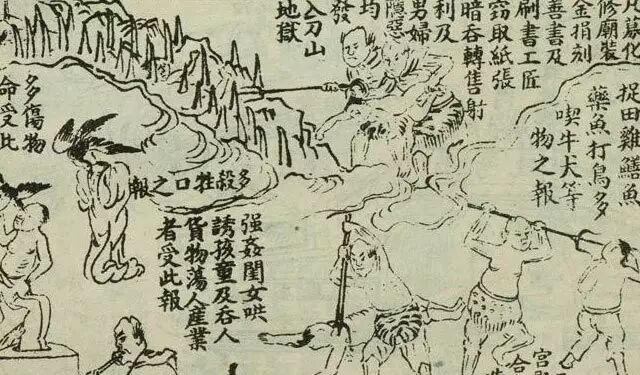 修廟裝
金捐刻
善書及
刷書工匠
竊取紙張
暗吞轉售射
利及
男婦
隱惡
均
發
入刀山
地獄
捉田雞鱔魚
藥魚打鳥多
喫牛犬等
物之報
多傷物
命受此
多殺牲口之報
强姦閨女哄
誘孩童及吞人
貨物蕩人產業
者受此報